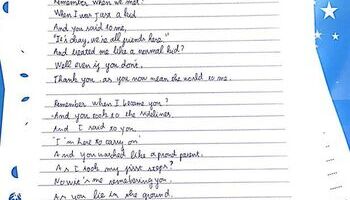 Remember when we met?
When I was just a kid
And you said to me,
"It's okay, we're all friends here"
And treated me like a normal kid?
Well even if you don't,
Thank you, as you now mean the world to me.
Remember when I became you?
And you took to the sidelines
And I said to you
'I'm here to carry on'
And you watched like a proud parent.
As I took my first steps?
Now it's me remembering you,
As you lie in the ground.